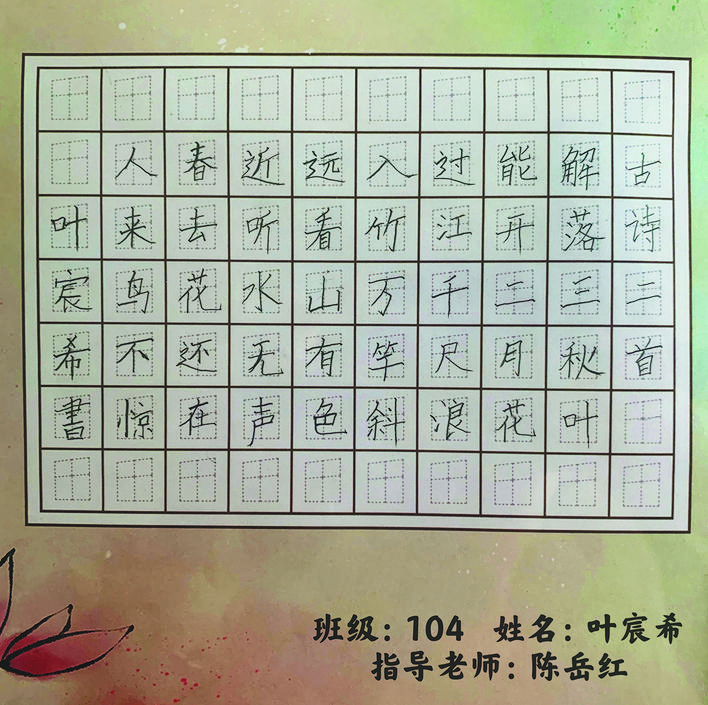 古诗二首
解落三秋叶
能开二月花
过江千尺浪
入竹万竿斜
远看山有色
近听水无声
春去花还在
人来鸟不惊
叶宸希書
班级：104 姓名：叶宸希
指导老师：陈岳红